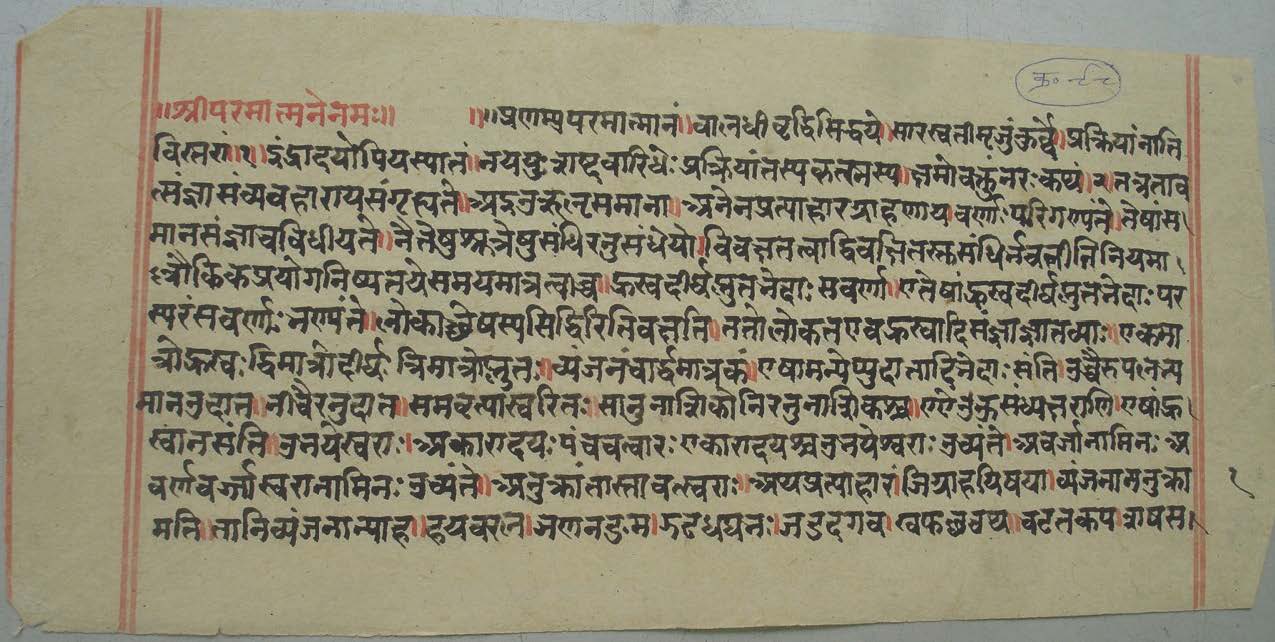 क्र० ८८
॥श्रीपरमात्मनेनमः॥ ॥प्रणम्यपरमात्मानं॥बालधीवृद्धिसिद्धये॥सारस्वतीमृजुंकुर्वे॥प्रक्रियांनाति
विस्तरां॥१॥इंद्रादयोपियस्यांतं॥नययुःशब्दवारिधेः प्रक्रियांतस्यकृत्स्नस्य॥क्षमोवक्तुंनरःकथं॥२तत्रताव
त्संज्ञासंव्यवहारायसंगृह्यते॥अइउऋऌसमानाः॥अनेनप्रत्याहारग्राहणायवर्णाःपरिगण्यंते॥तेषांस
मानसंज्ञाचविधीयते॥नैतेषुसूत्रेषुसंधिरनुसंधेयो॥विवक्षितत्वाद्विवक्षितस्तुसंधिर्भवतीतिनियमा
ल्लौकिकप्रयोगनिष्पत्तयेसमयमात्रत्वाच्च॥ह्रस्वदीर्घप्लुतभेदाः सवर्णाः॥एतेषांह्रस्वदीर्घप्लुतभेदाः पर
स्परंसवर्णाः भण्यंते॥लोकाच्छेषस्यसिद्धिरितिवक्ष्यति॥ततोलोकतएवह्रस्वादिसंज्ञाज्ञातव्याः॥एकमा
त्रोह्रस्वः द्विमात्रोदीर्घः त्रिमात्रःप्लुतः॥व्यंजनंचार्द्धमात्रकं॥एषामन्येप्युदात्तादिभेदाः संति॥उच्चैरुपलभ्य
मानउदात्तः॥नीचैरनुदात्तः॥समवृत्त्यास्वरितः॥सानुनासिकोनिरनुनासिकश्च॥एऐओऔसंध्यक्षराणि॥एषांह्र
स्वानसंति॥उभयेस्वराः॥अकारादयः पंचचत्वारः एकारादयश्चउभयेस्वराः उच्यंते॥अवर्जानामिनः अ
वर्णवर्ज्जास्वरानामिनः उच्यंते॥अनुक्रांतास्तावत्स्वराः॥अथप्रत्याहारंजिग्राहयिषया॥व्यंजनामनुक्रा
मति॥तानिव्यंजनान्याह॥हयवरल॥ञणनङम॥झढधघभः॥जडदगब॥खफछठथ॥चटतकप॥शषस॥
१